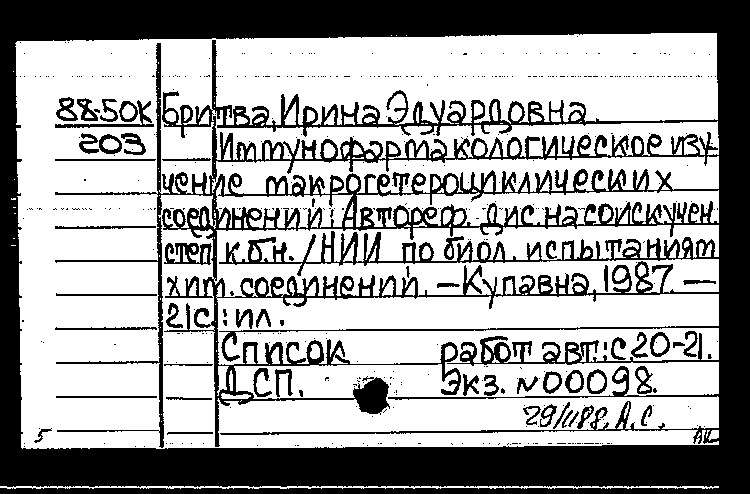 88-50К Бритва, Ирина Эдуардовна.
203 Иммунофармакологическое изу-
чение макрогетероциклических
соединений: Автореф. дис. на соиск. учен.
степ. к.б.н. / НИИ по биол. испытаниям
хим. соединений. — Купавна, 1987. —
21с.: ил.
Список работ авт.: с.20-21.
ДСП. Экз. №00098.
29/II88. А.С.
5 АК